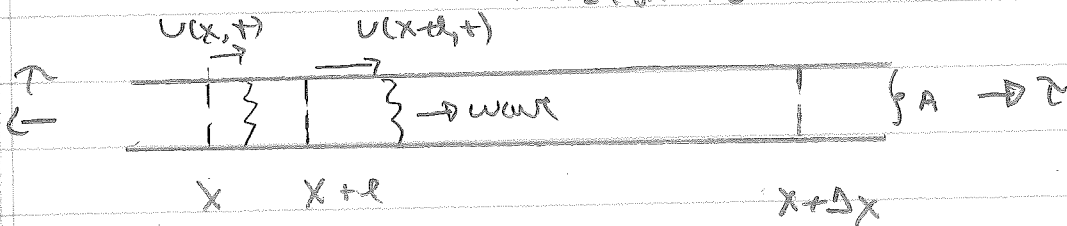 U(x,t) U(x+l,t)
τ → wave A → τ
x x+l x+Δx